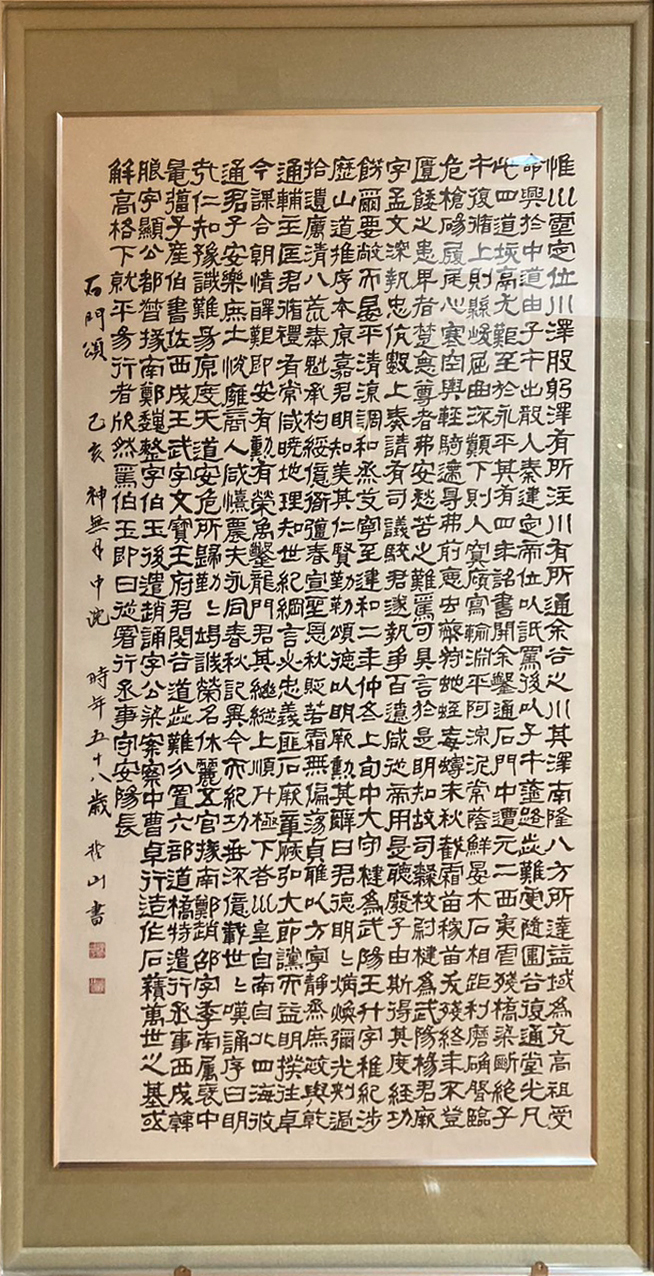 惟川靈定位川澤股躬澤有所注川有所通余谷之川其澤南隆八方所達益域為充高祖受
命興於中道由子午出散入秦建定帝位以詆焉後以子午塗路歮難更隨圍谷復通堂光凡
此四道垓鬲尤難至於永平其有四年詔書開余鑿通石門中遭元二西夷虐殘橋梁斷絕子
午復循上則縣峻屈曲深顛下則入冥廎寫輸淵平阿淖泥常蔭鮮晏木石相距利磨确磐臨
危槍碭履尾心寒空輿輕騎遰㝵弗前惡虫蔽狩虵蛭毒蟃未秋截霜苗稼苗夭殘終年不登
匱餧之患卑者楚惡尊者弗安愁苦之難焉可具言於是明知故司隸校尉楗為武陽楊君厥
字孟文深執忠伉數上奏請有司議駮君遂執爭百遼咸從帝用是聽廢子由斯得其度經功
飭爾要敞而晏平清涼調和烝艾寧至建和二年仲冬上旬中大守楗為武陽王升字稚紀涉
歷山道推序本原嘉君明知美其仁賢勤勒頌德以明厥勳其辭曰君德明〻炳煥彌光刺過
拾遺厲清八荒奉魁承杓綏億衙彊春宣聖恩秋貶若霜無偏蕩貞雅以方寧靜烝庶政與乾
通輔主匡君循禮有常咸曉地理知世紀綱言必忠義匪石厥章厥弘大節讜而益明揆往卓
今謀合朝情醳艱即安有勳有榮禹鑿龍門君其繼縱上順升極下答巛皇自南自北四海攸
通君子安樂庶士悅雍商人咸憘農夫永同春秋記異今而紀功垂流億載世〻嘆誦序曰明
哉仁知豫識難易原度天道安危所歸勤〻竭誠榮名休麗五官掾南鄭趙邵字季南屬襃中
鼂彊字產伯書佐西成王戒字文寶王府君閔谷道歮難分置六部道橋特遣行丞事西成韓
朖字顯公都督掾南鄭魏整字伯玉後遣趙誦字公梁案察中曹卓行造作石積萬世之基或
解高格下就平易行者欣然焉伯玉即日徙署行丞事守安陽長
石門頌 乙亥 神無月 中浣 時年五十八歲 山書